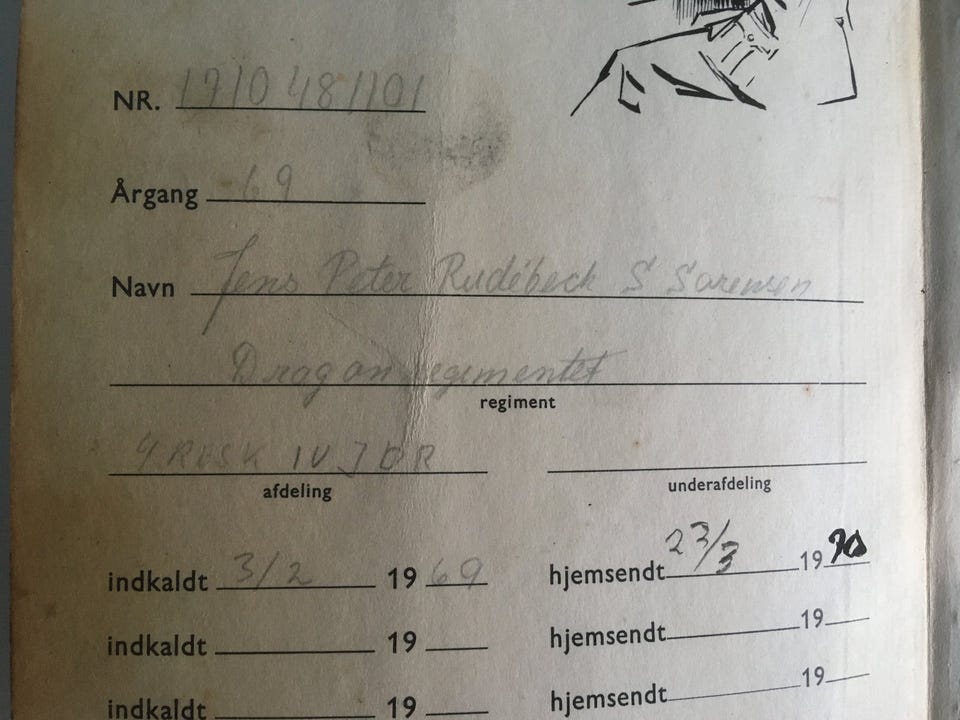 NR. 171048/1101
Årgang 69
Navn Jens Peter Rudebeck S Sørensen
Dragonregimentet
regiment
4 RESK IV JDR
afdeling
underafdeling
indkaldt 3/2 1969 hjemsendt 23/3 1970
indkaldt 19 hjemsendt 19
indkaldt 19 hjemsendt 19